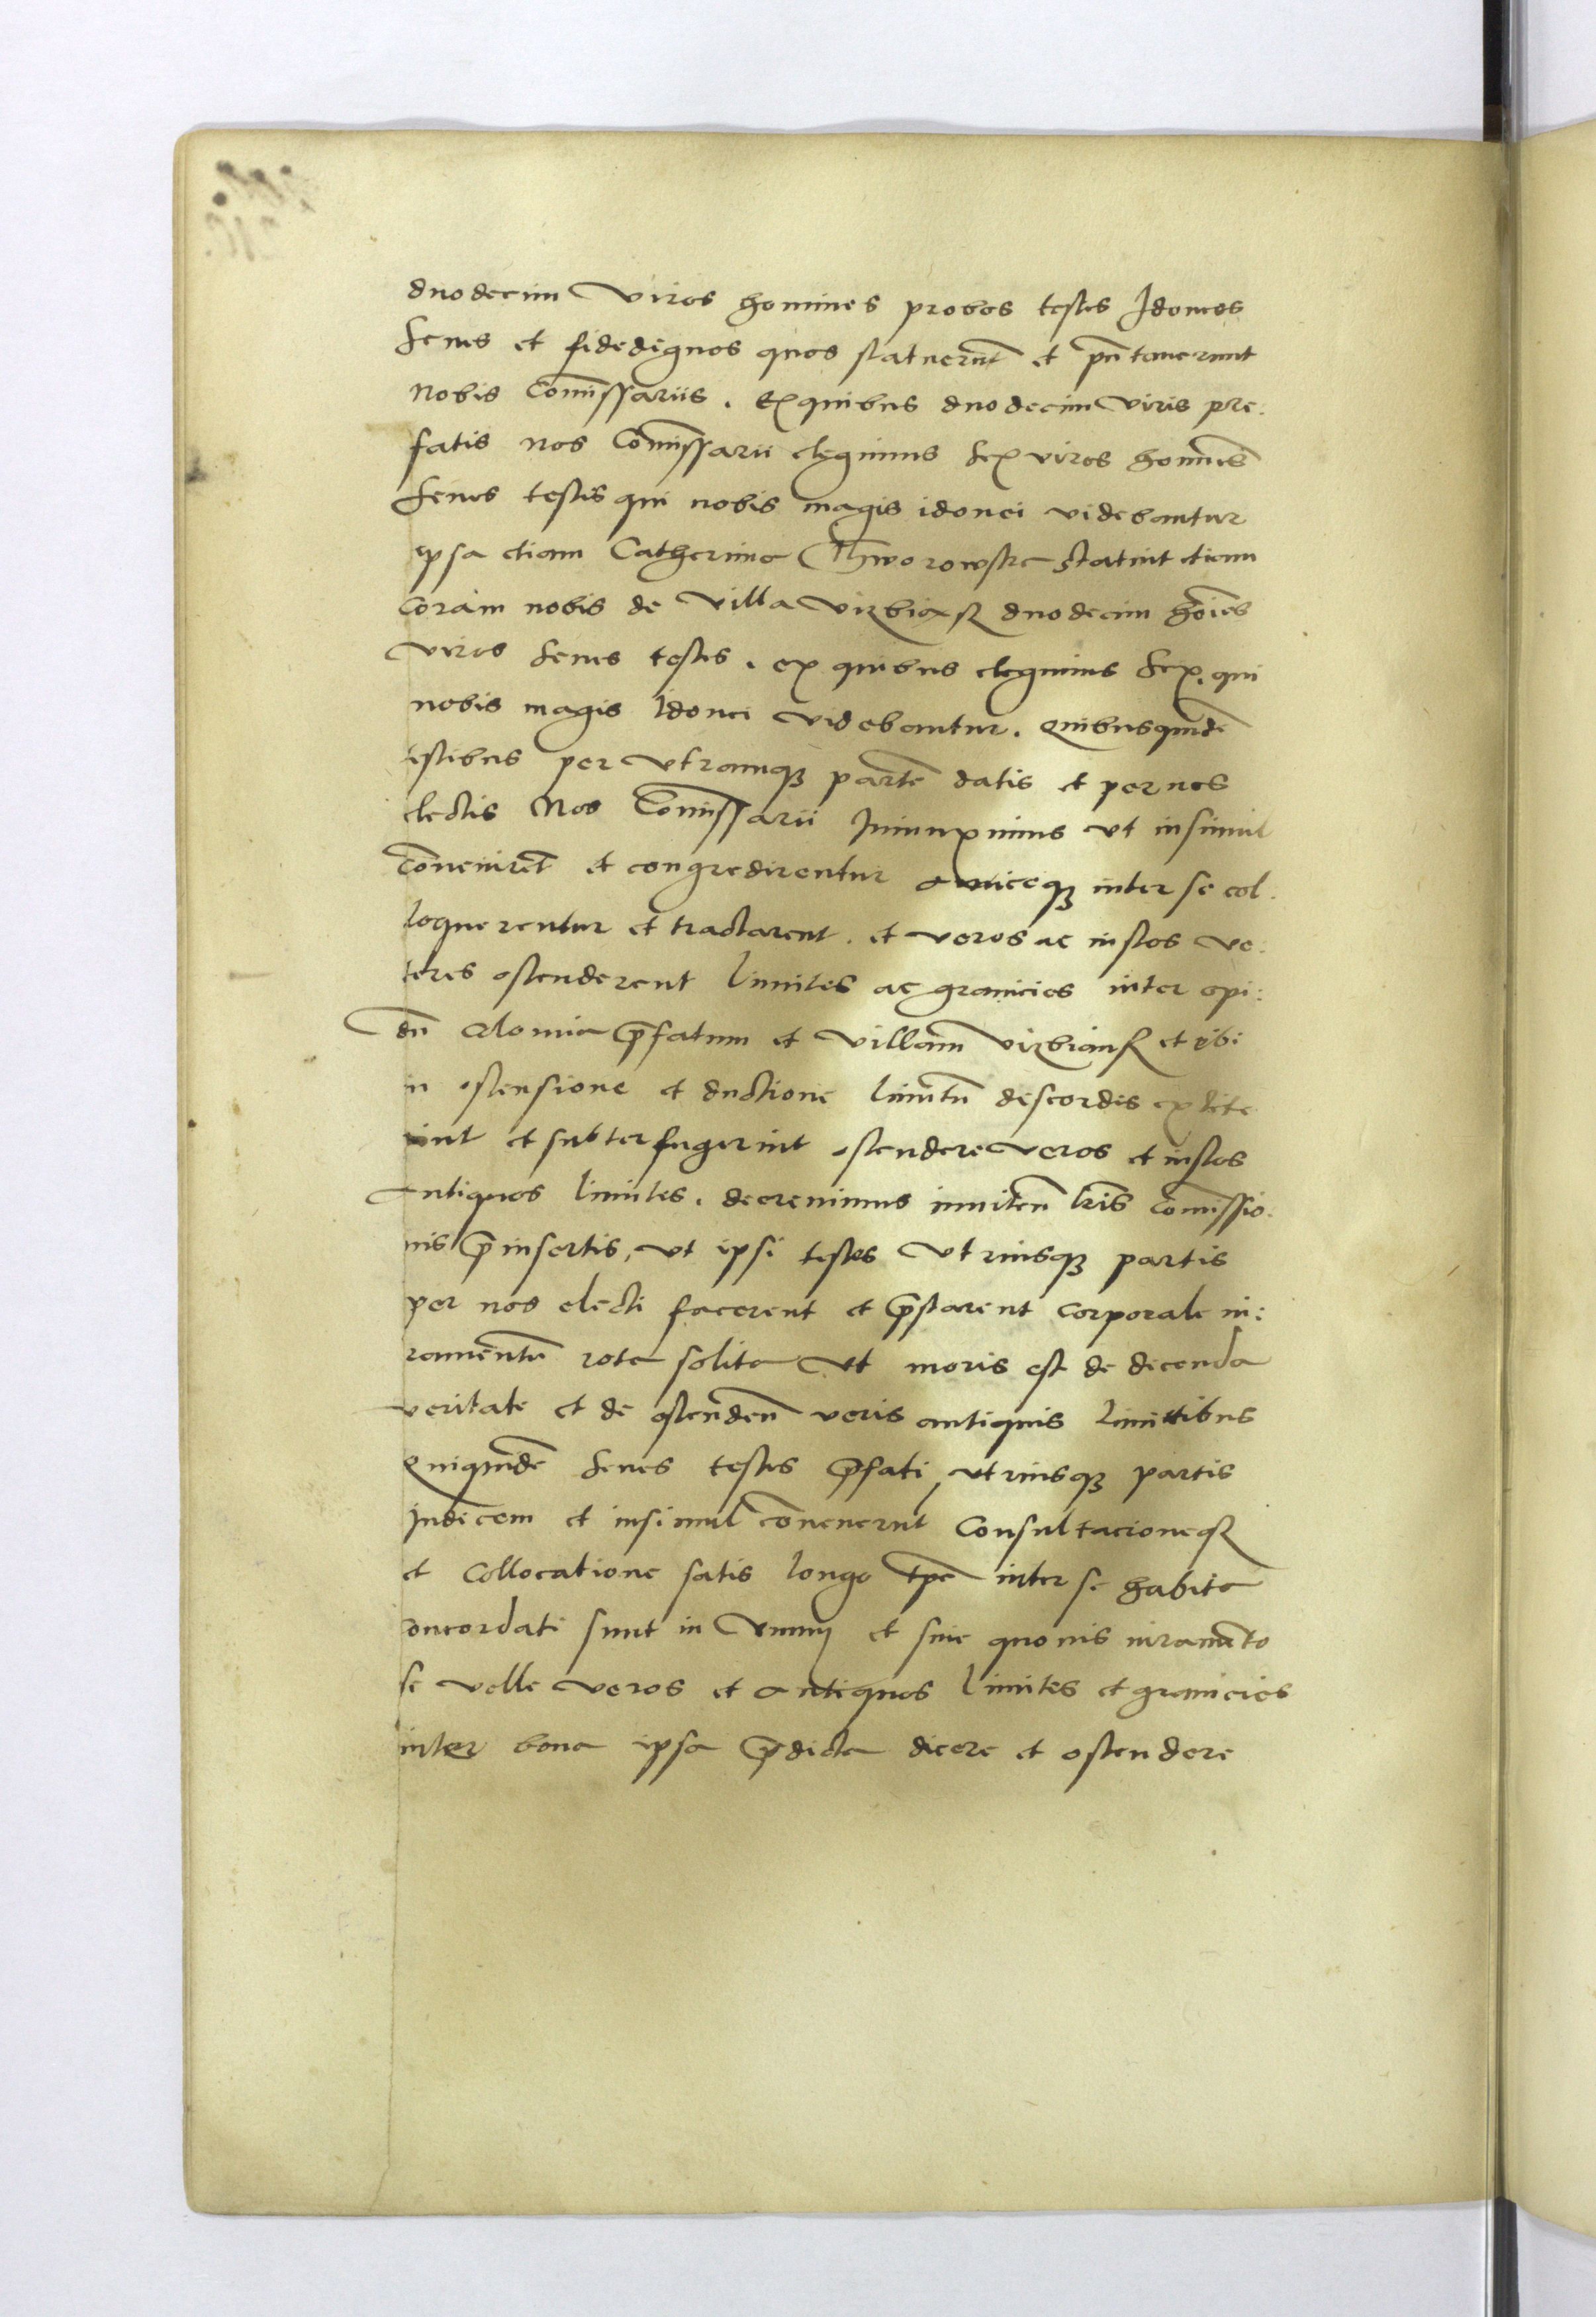 duodecim viros homines probos testes Idoneos
senes et fidedignos quos statuerūt et p̄ntauerunt
Nobis Com̄issariis. Ex quibus duodecim viris pre:
fatis nos Com̄issarii elegimus sex viros homīes
senes testes qui nobis magis idonei videbantur
ipsa etiam Catherina Thworowska statuit etiam
coram nobis de villa virbiąsz duodecim hoīes
viros senes testes. ex quibus elegimus sex, qui
nobis magis Idonei videbantur. Quibusquidē
testibus per utramqꝫ partē datis et per nos
electis Nos Com̄issarii Iniunximus ut insimul
cōuenirēt et congredirentur amiceqꝫ inter se col:
loquerentur et tractarent. et veros ac iustos ve:
teres ostenderent limites ac granicies inter opi:
dū p̄fatum et villam virbiansz et ibi
in ostensione et ductione limitū descordes extite
rint et subterfugerint ostendere veros et iustos
antiquos limites. decreuimus inniten̄ lr̄is Com̄issio:
nis p̄insertis, ut ipsi testes utriusqꝫ partis
per nos electi facerent et p̄starent corporale iu:
ramentū rota solita ut moris est de dicenda
veritate et de ostenden̄ veris antiquis limittibus
Quiquidē senes testes p̄fati utriusqꝫ partis
Inuicem et insimul cōuenerūt Consultacioneqꝫ
et Collocatione satis longo tp̄e inter se habita
concordati sunt in vnum et sine quouis iuramēto
se velle veros et antiquos limites et granicies
inter bona ipsa p̄dicta dicere et ostendere